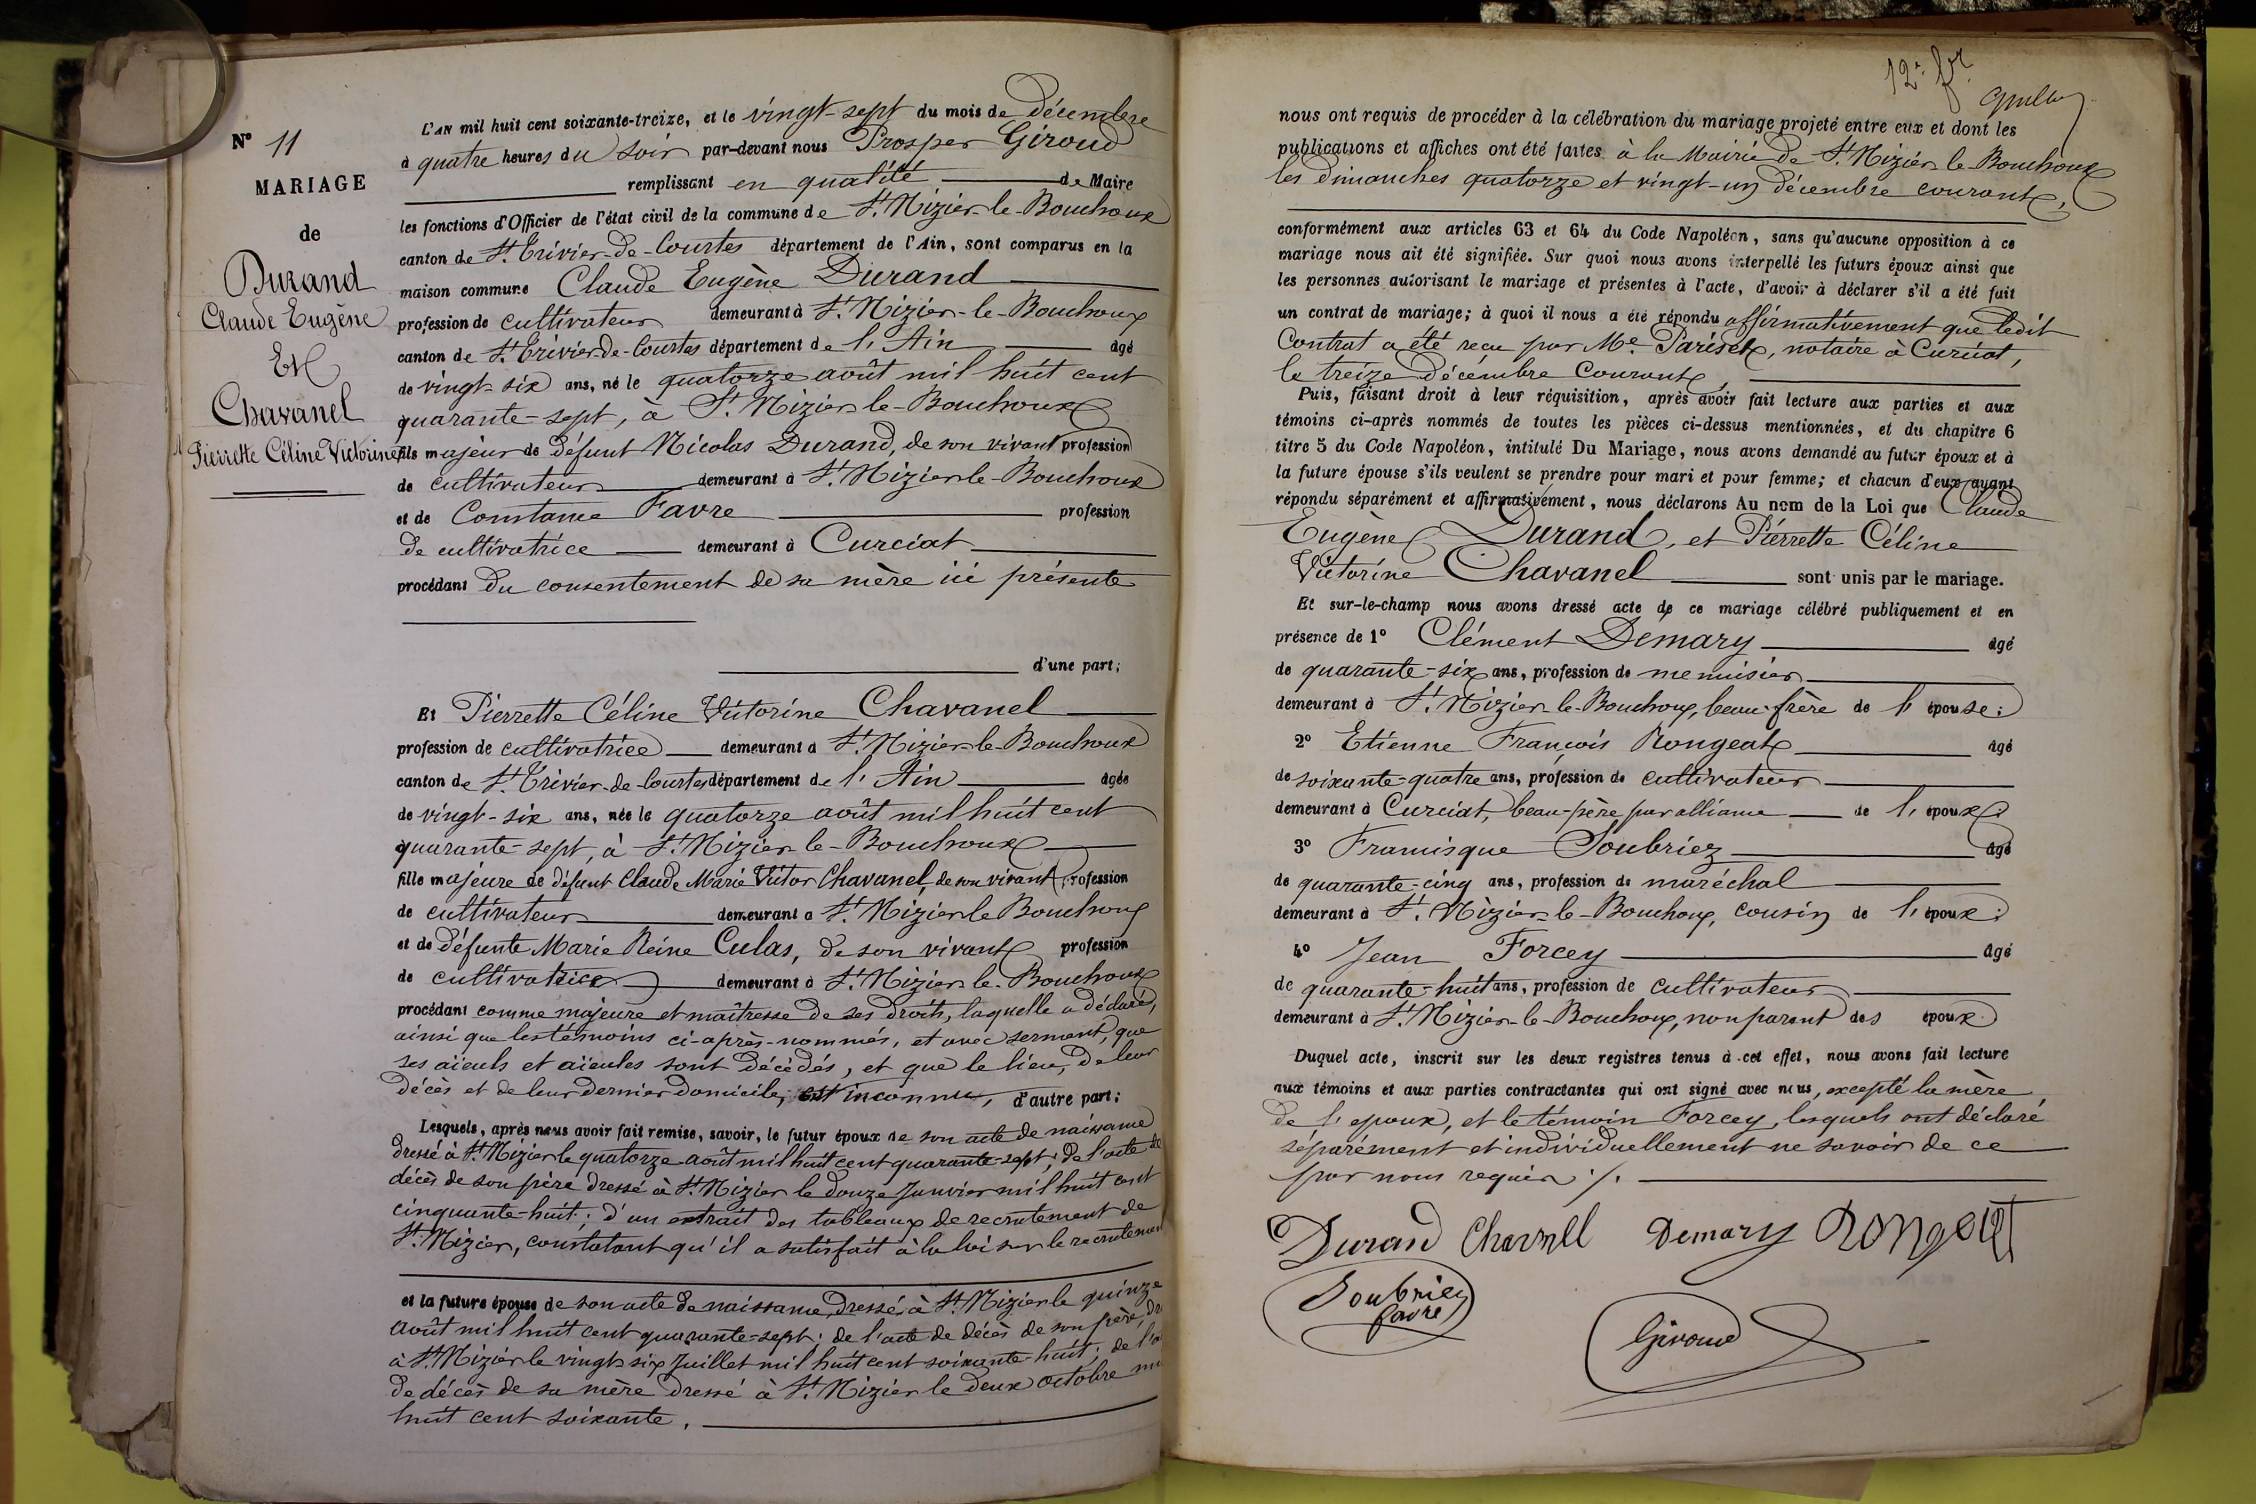 N° 11
MARIAGE
de
Durand
Claude Eugène
Et
Chavanel
Pierrette Céline Victorine
L'AN mil huit cent soixante-treize, et le vingt-sept du mois de décembre
à quatre heures du soir par-devant nous Prosper Giroud
remplissant en qualité de Maire
les fonctions d'Officier de l'état civil de la commune de St. Nizier-le-Bouchoux
canton de St. Trivier-de-Courtes département de l'Ain, sont comparus en la
maison commune Claude Eugène Durand
profession de cultivateur demeurant à St. Nizier-le-Bouchoux
canton de St. Trivier-de-Courtes département de l'Ain âgé
de vingt-six ans, né le quatorze août mil huit cent
quarante-sept, à St. Nizier-le-Bouchoux
fils majeur de défunt Nicolas Durand, de son vivant profession
de cultivateur demeurant à St. Nizier-le-Bouchoux
et de Constance Favre profession
de cultivatrice demeurant à Curciat
procédant du consentement de sa mère ici présente
d'une part;
Et Pierrette Céline Victorine Chavanel
profession de cultivatrice demeurant à St. Nizier-le-Bouchoux
canton de St. Trivier-de-Courtes département de l'Ain âgée
de vingt-six ans, née le quatorze août mil huit cent
quarante-sept, à St. Nizier-le-Bouchoux
fille majeure de défunt Claude Marie Victor Chavanel, de son vivant profession
de cultivateur demeurant à St. Nizier-le-Bouchoux
et de défunte Marie Reine Culas, de son vivant profession
de cultivatrice demeurant à St. Nizier-le-Bouchoux
procédant comme majeure et maîtresse de ses droits, laquelle a déclaré,
ainsi que les témoins ci-après-nommés, et avec serment, que
ses aïeuls et aïeules sont décédés, et que le lieu, de leur
décès et de leur dernier domicile, est inconnu, d'autre part;
Lesquels, après nous avoir fait remise, savoir, le futur époux de son acte de naissance
dressé à St. Nizier le quatorze août mil huit cent quarante-sept; de l'acte de
décès de son père dressé à St. Nizier le douze Janvier mil huit cent
cinquante-huit; d'un extrait des tableaux de recrutement de
St. Nizier, constatant qu'il a satisfait à la loi sur le recrutement
et la future épouse de son acte de naissance, dressé à St. Nizier le quinze
août mil huit cent quarante-sept; de l'acte de décès de son père, dr
à St. Nizier le vingt-six Juillet mil huit cent soixante-huit; de l'a
de décès de sa mère dressé à St. Nizier le deux octobre mi
huit cent soixante.
12e fr
nous ont requis de procéder à la célébration du mariage projeté entre eux et dont les
publications et affiches ont été faites à la Mairie de St. Nizier-le-Bouchoux
les dimanches quatorze et vingt-un décembre courant,
conformément aux articles 63 et 64 du Code Napoléon, sans qu'aucune opposition à ce
mariage nous ait été signifiée. Sur quoi nous avons interpellé les futurs époux ainsi que
les personnes autorisant le mariage et présentes à l'acte, d'avoir à déclarer s'il a été fait
un contrat de mariage; à quoi il nous a été répondu affirmativement que ledit
Contrat a été recu par Me. Pariset, notaire à Curciat,
le treize décembre courant,
Puis, faisant droit à leur réquisition, après avoir fait lecture aux parties et aux
témoins ci-après nommés de toutes les pièces ci-dessus mentionnées, et du chapitre 6
titre 5 du Code Napoléon, intitulé Du Mariage, nous avons demandé au futur époux et à
la future épouse s'ils veulent se prendre pour mari et pour femme; et chacun d'eux ayant
répondu séparément et affirmativement, nous déclarons Au nom de la Loi que Claude
Eugène Durand, et Pierrette Céline
Victorine Chavanel sont unis par le mariage.
Et sur-le-champ nous avons dressé acte de ce mariage célébré publiquement et en
présence de 1° Clément Démary âgé
de quarante-six ans, profession de menuisier
demeurant à St. Nizier-le-Bouchoux, beau-frère de l'épouse;
2° Etienne François Rongeat âgé
de soixante-quatre ans, profession de cultivateur
demeurant à Curciat, beau-père par alliance de l'époux;
3° Framisque Soubriez âgé
de quarante-cinq ans, profession de maréchal
demeurant à St. Nizier-le-Bouchoux, cousin de l'époux;
4° Jean Forcey âgé
de quarante-huit ans, profession de cultivateur
demeurant à St. Nizier-le-Bouchoux, non parent des époux
Duquel acte, inscrit sur les deux registres tenus à cet effet, nous avons fait lecture
aux témoins et aux parties contractantes qui ont signé avec nous, excepté la mère
de l'époux, et le témoin Forcey, lesquels ont déclaré
séparément et individuellement ne savoir de ce
par nous requis ./.
Durand Chavanel Demary Rongeat
Soubriez
favre
Giroud